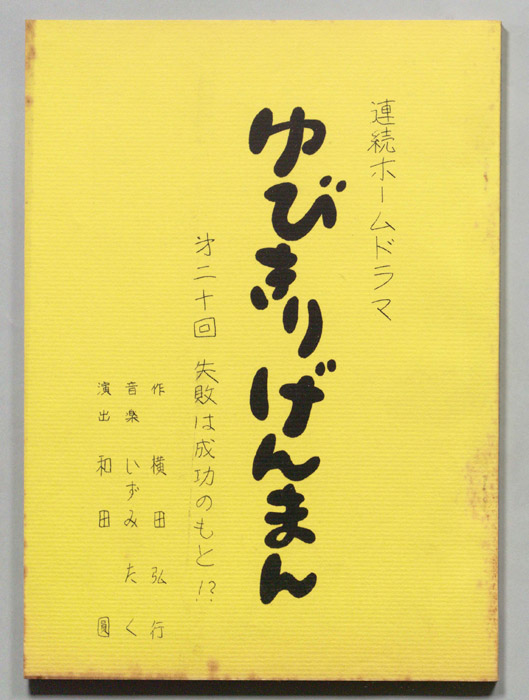 連続ホームドラマ
ゆびきりげんまん
第二十回 失敗は成功のもと!?
作 横田弘行
音楽 いずみたく
演出 和田圓